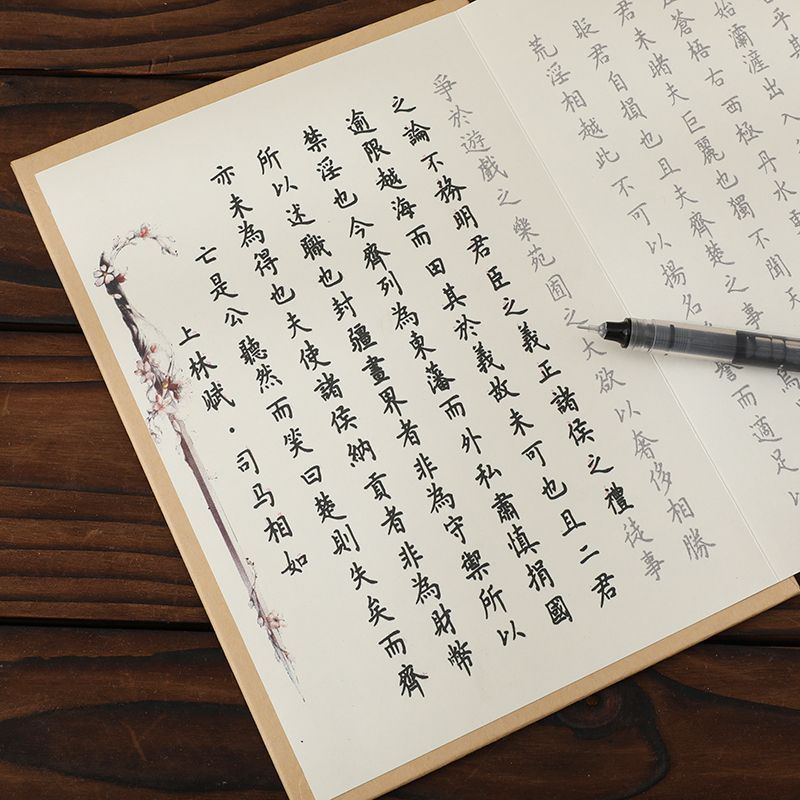 上林赋·司马相如
亡是公聽然而笑曰楚則失矣而齊
亦未為得也夫使諸侯納貢者非為財幣
所以述職也封疆畫界者非為守禦所以
禁淫也今齊列為東藩而外私肅慎捐國
逾限越海而田其於義故未可也且二君
之論不務明君臣之義正諸侯之禮徒事
爭於遊戲之樂苑囿之大欲以奢侈相勝
荒淫相越此不可以揚名譽而適足以
貶君自損也且夫齊楚之事烏
君未睹夫巨麗也獨不聞天
蒼梧右西極丹水更
始灞滻出入
乎其